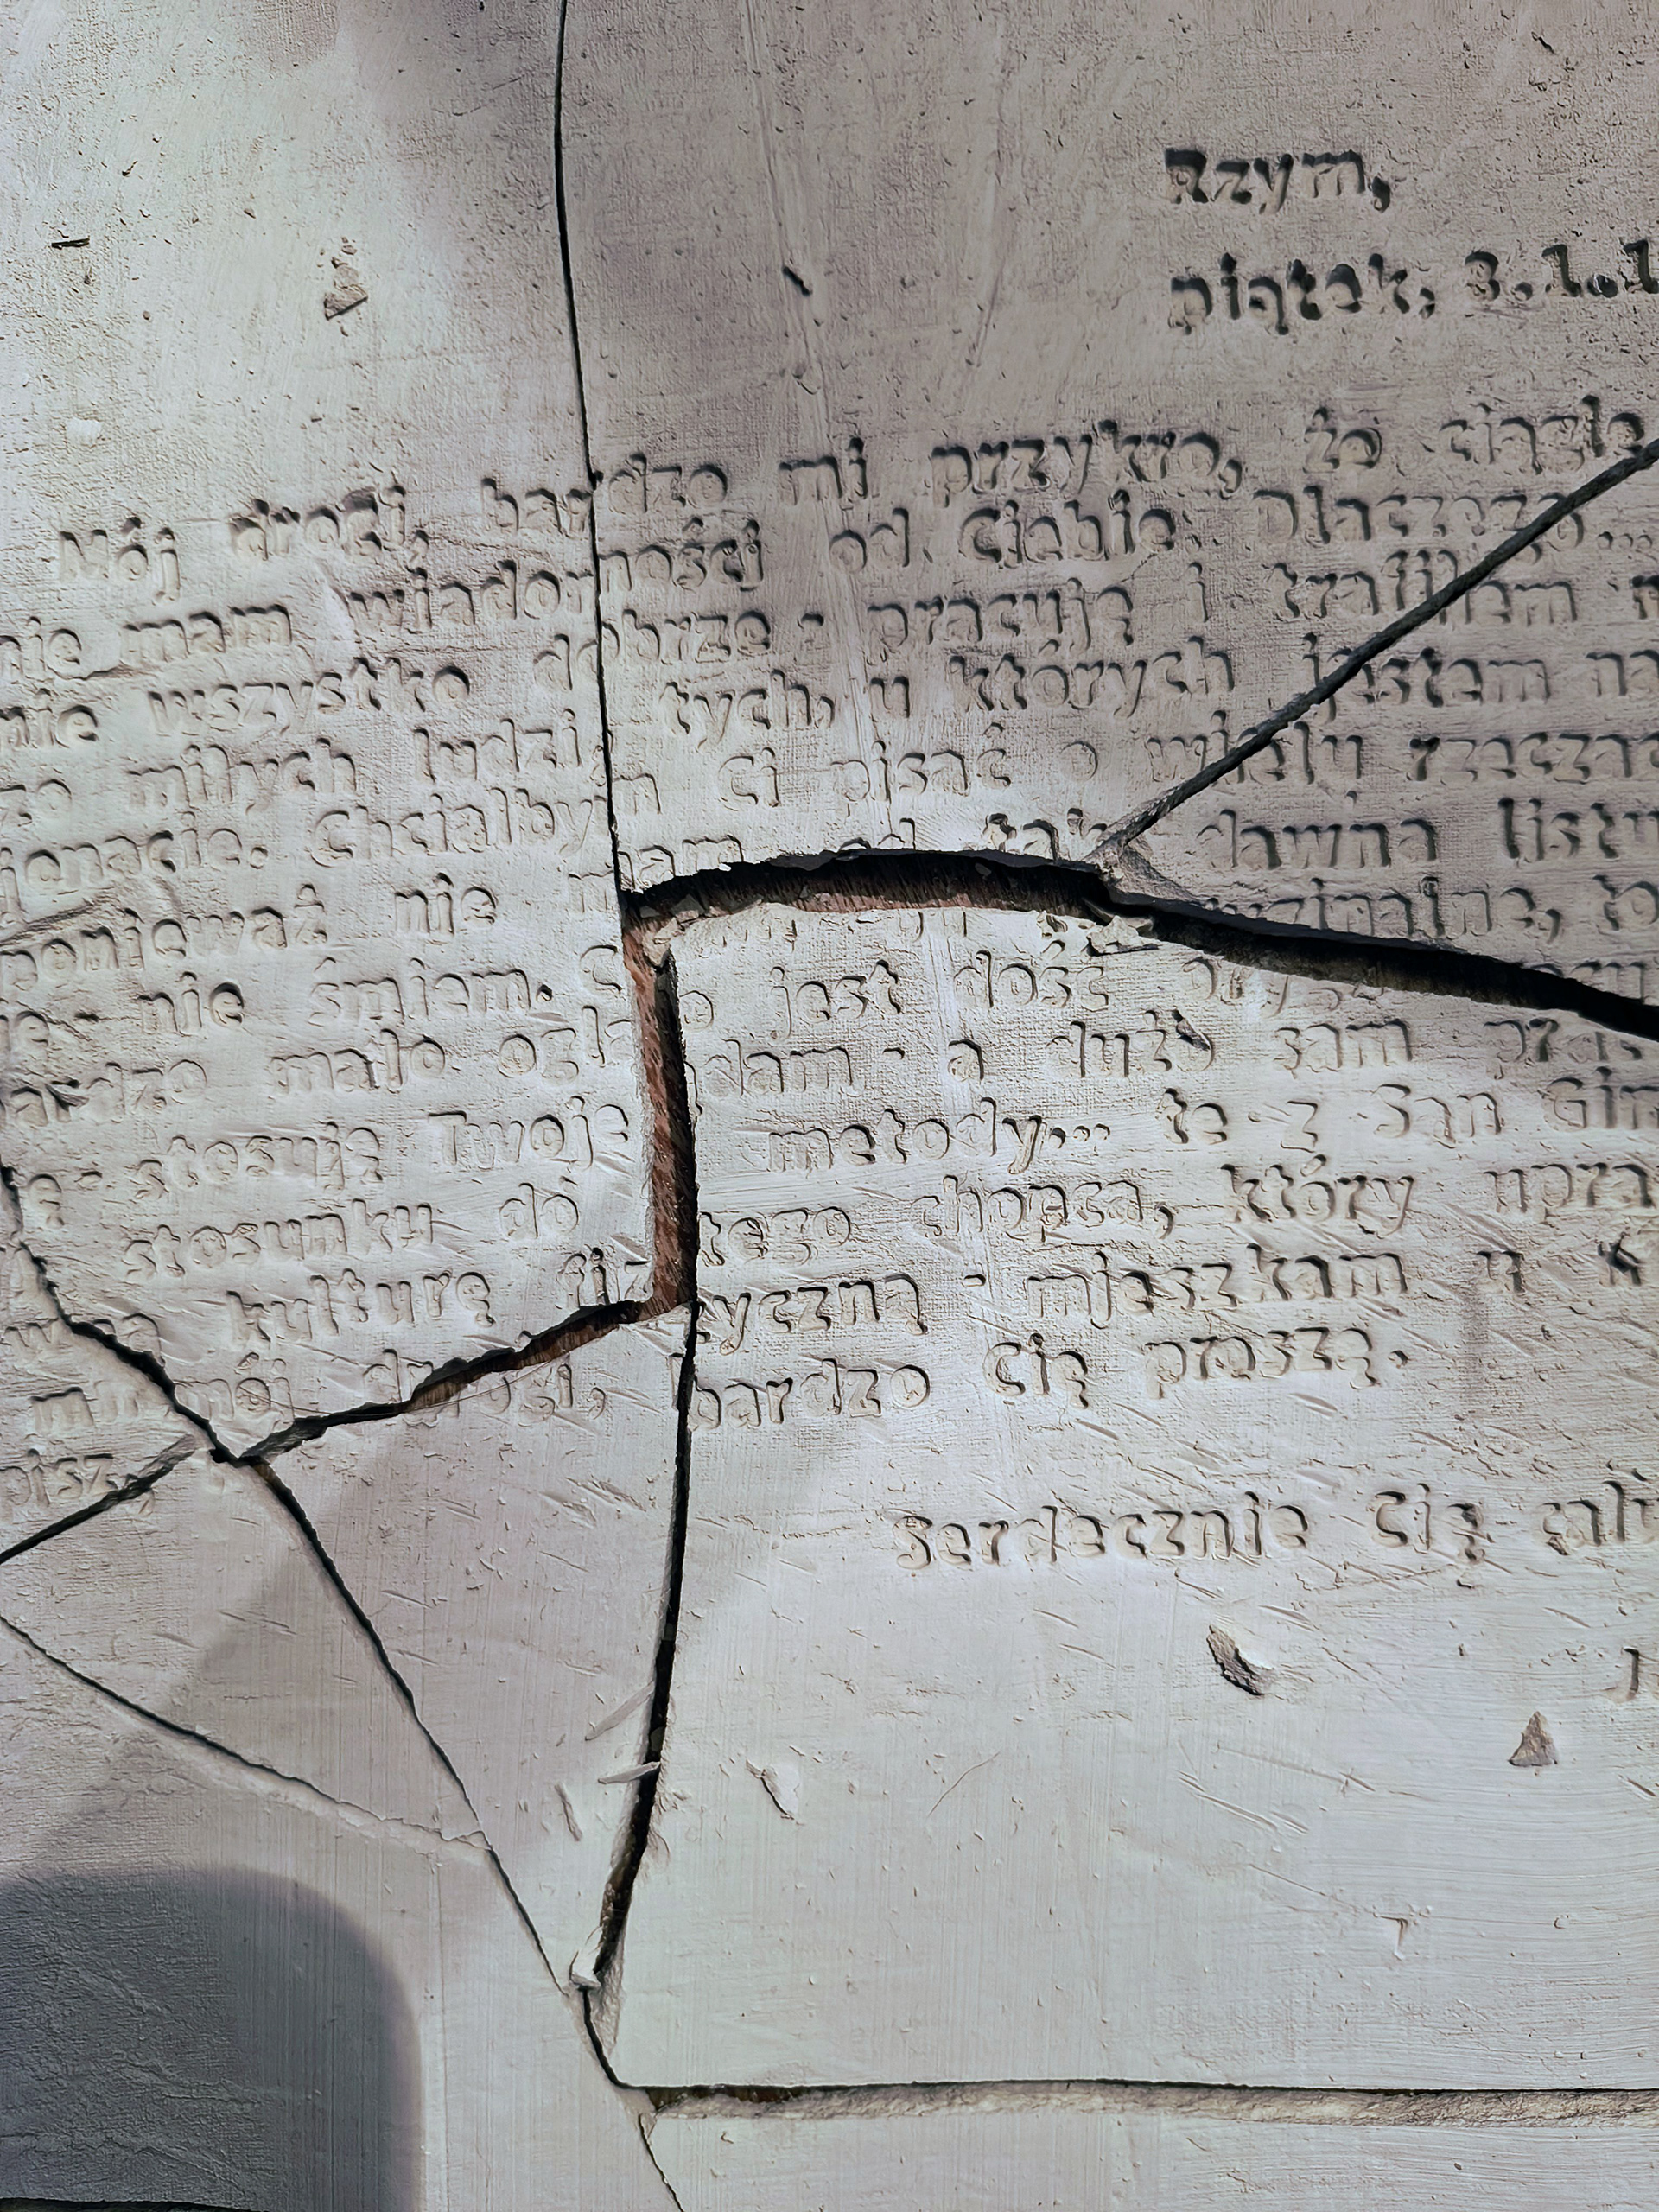 Rzym,
piątek, 3.1.1
Mój drogi, bardzo mi przykro, że ciągle
nie mam wiadomości od Ciebie. Dlaczego...
nie wszystko dobrze - pracuję i trafiłem n
zo miłych ludzi, tych, u których jestem na
jonacie. Chciałbym Ci pisać o wielu rzeczac
ponieważ nie mam od tak dawna listu
ie - nie śmiem. Co jest dość oryginalne, to
ardzo mało oglądam - a dużo sam
ę - stosuję Twoje metody... te z San Gim
stosunku do tego chłopca, który upra
wna kulturę fizyczną - mieszkam u
pisz, mój drogi, bardzo Cię proszę.
Serdecznie Cię cału